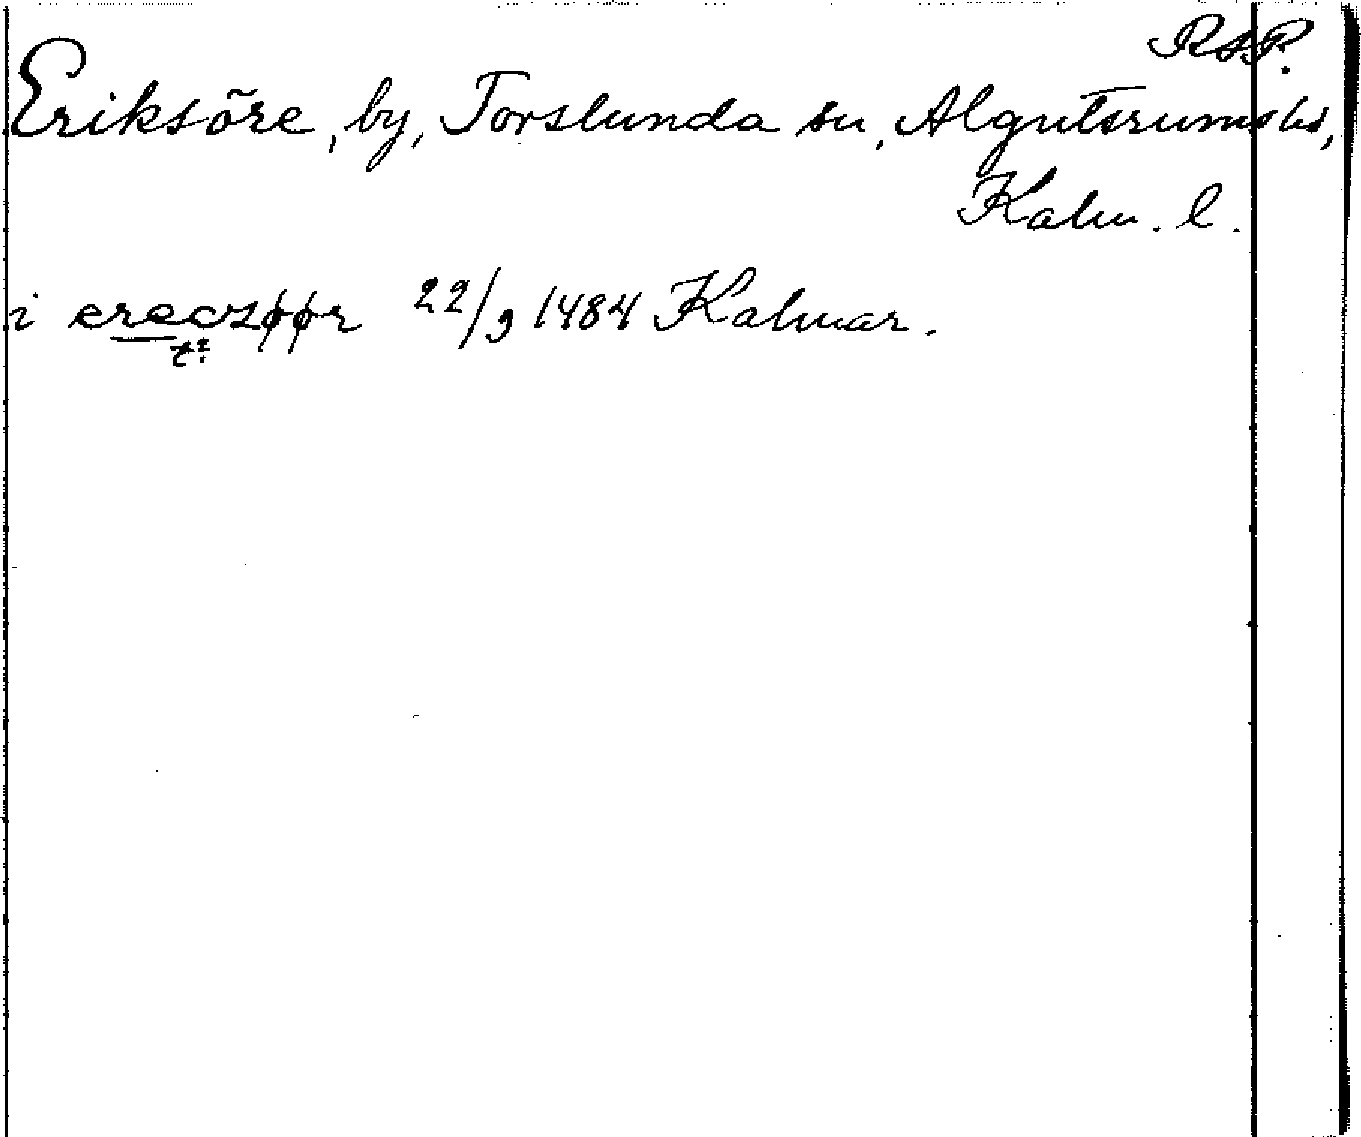 RAP.
Eriksöre, by, Torslunda sn, Algutsrums hd,
Kalm. l.
i erecszøør 22/9 1484 Kalmar.
t?